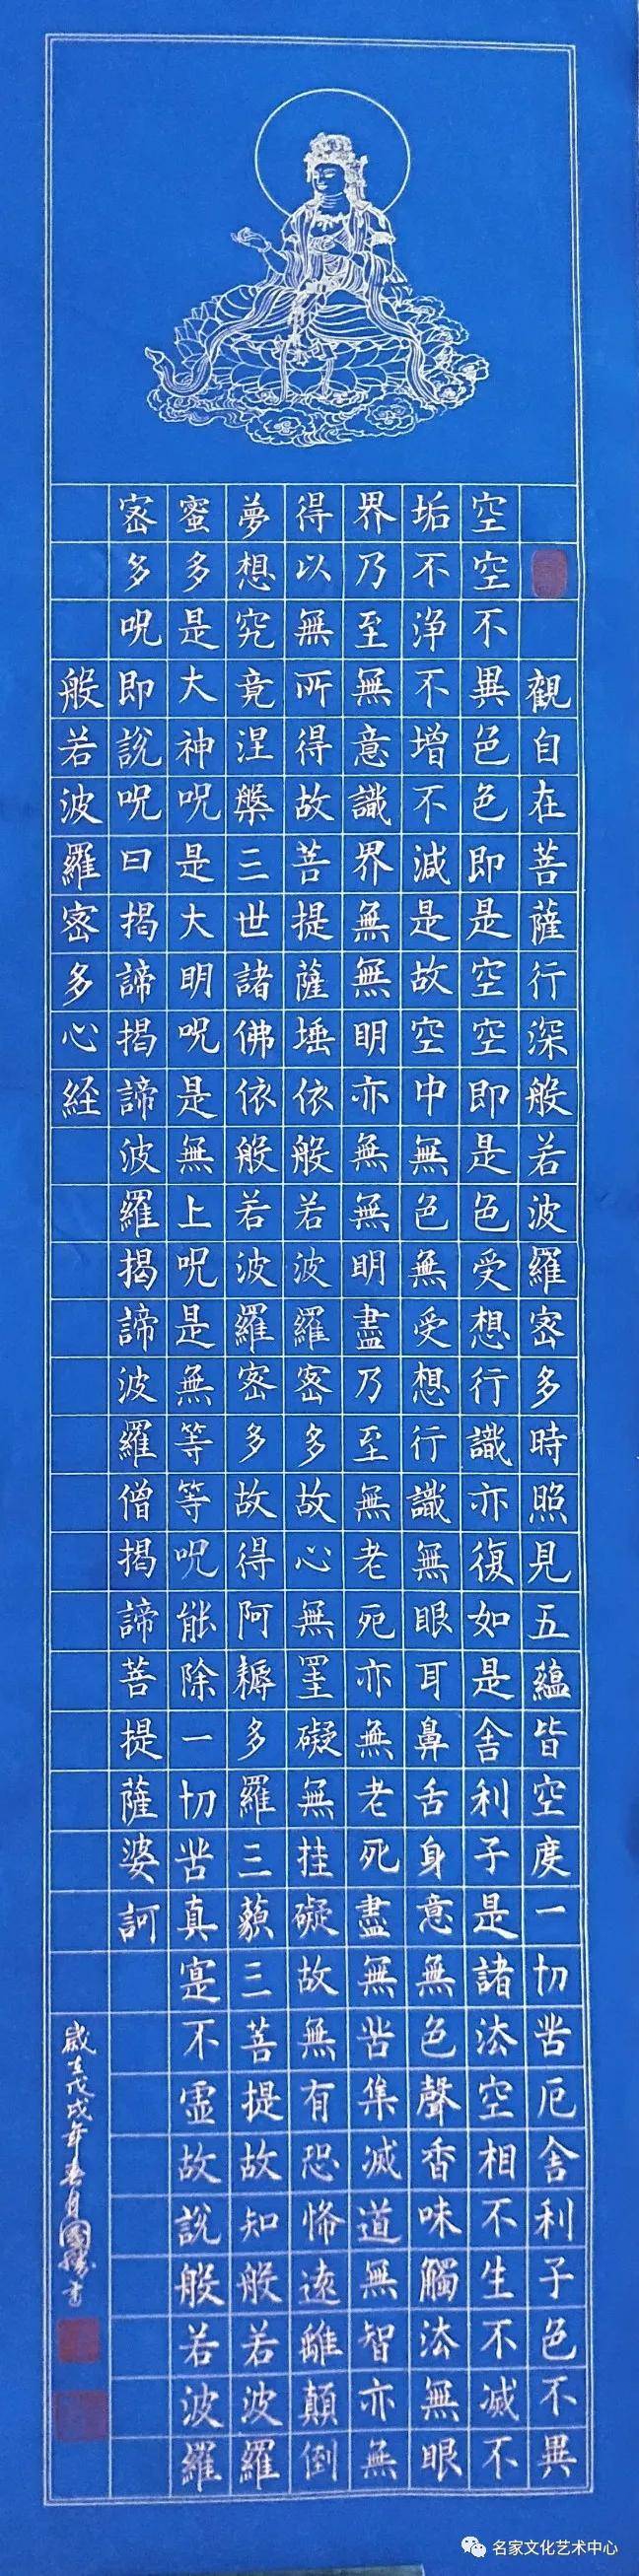 觀自在菩薩行深般若波羅密多時照見五蘊皆空度一切苦厄舍利子色不異
空空不異色色即是空空即是色受想行識亦復如是舍利子是諸法空相不生不滅不
垢不淨不增不減是故空中無色無受想行識無眼耳鼻舌身意無色聲香味觸法無眼
界乃至無意識界無無明亦無無明盡乃至無老死亦無老死盡無苦集滅道無智亦無
得以無所得故菩提薩埵依般若波羅密多故心無罣礙無挂礙故無有恐怖遠離顛倒
夢想究竟涅槃三世諸佛依般若波羅密多故得阿耨多羅三藐三菩提故知般若波羅
蜜多是大神呪是大明呪是無上呪是無等等呪能除一切苦真寔不虛故說般若波羅
密多呪即說呪曰揭諦揭諦波羅揭諦波羅僧揭諦菩提薩婆訶
般若波羅密多心経
歲在戊戌年月國書
名家文化艺术中心